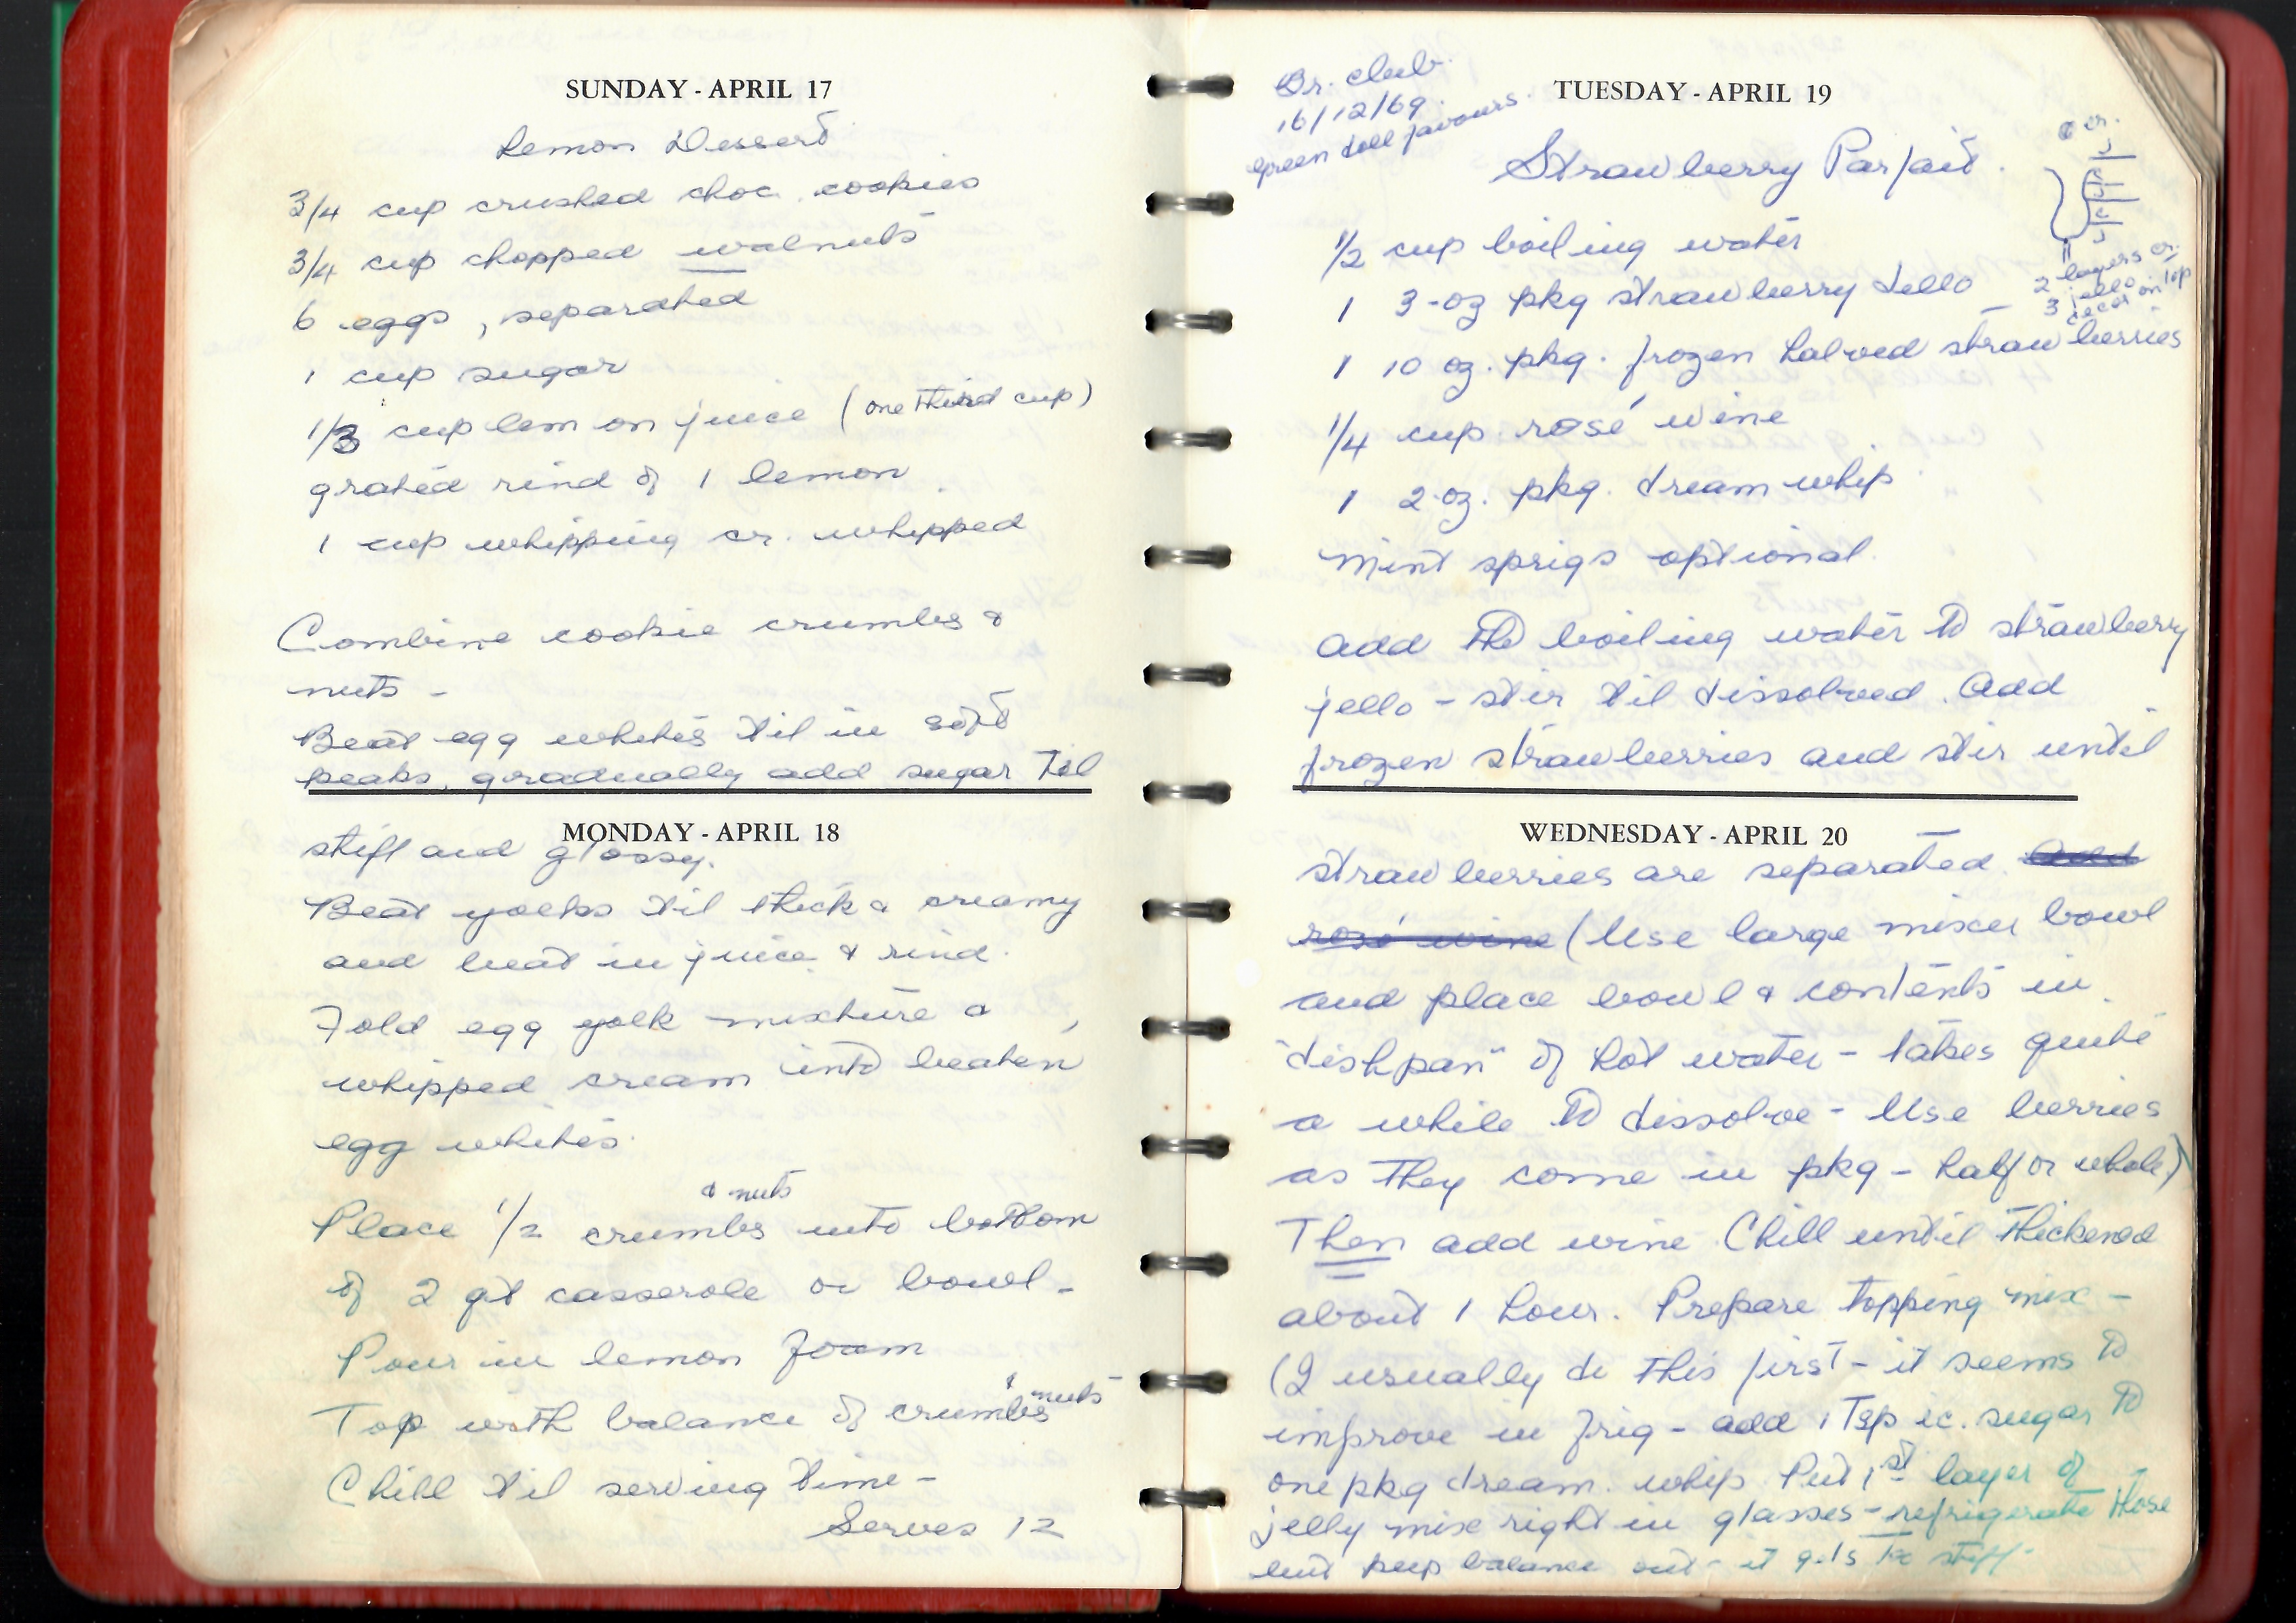 SUNDAY - APRIL 17
Lemon Dessert
3/4 cup crushed choc. cookies
3/4 cup chopped walnuts
6 eggs, separated
1 cup sugar
1/3 cup lemon juice (one third cup)
grated rind of 1 lemon
1 cup whipping cr. whipped
Combine cookie crumbs &
nuts -
Beat egg whites 'til in soft
peaks, gradually add sugar Til
MONDAY - APRIL 18
stiff and glossy.
Beat yolks 'til thick & creamy
and beat in juice & rind.
Fold egg yolk mixture &
whipped cream into beaten
egg whites.
& nuts
Place 1/2 crumbs into bottom
of 2 qt casserole or bowl -
Pour in lemon foam
& nuts
Top with balance of crumbs
Chill 'til serving time -
Serves 12
Br. club.
16/12/69.
Green doll favours.
TUESDAY - APRIL 19
Strawberry Parfait.
cr.
J
c
J
c
J
2 layers cr.
3 jello
decor on top
1/2 cup boiling water
1 3-oz pkg strawberry Jello
1 10 oz. pkg. frozen halved strawberries
1/4 cup rosé wine
1 2-oz. pkg. dream whip
Mint sprigs optional.
Add the boiling water to strawberry
jello - stir 'til dissolved. Add
frozen strawberries and stir until
WEDNESDAY - APRIL 20
strawberries are separated. Add
rosé wine (Use large mixer bowl
and place bowl & contents in
"dishpan" of hot water - takes quite
a while to dissolve - Use berries
as they come in pkg - half or whole)
Then add wine. Chill until thickened
about 1 hour. Prepare topping mix -
(I usually do this first - it seems to
improve in frig - add 1 Tsp ic. sugar to
one pkg dream whip. Put 1st layer of
jelly mix right in glasses - refrigerate those
but keep balance out - it gets too stiff.